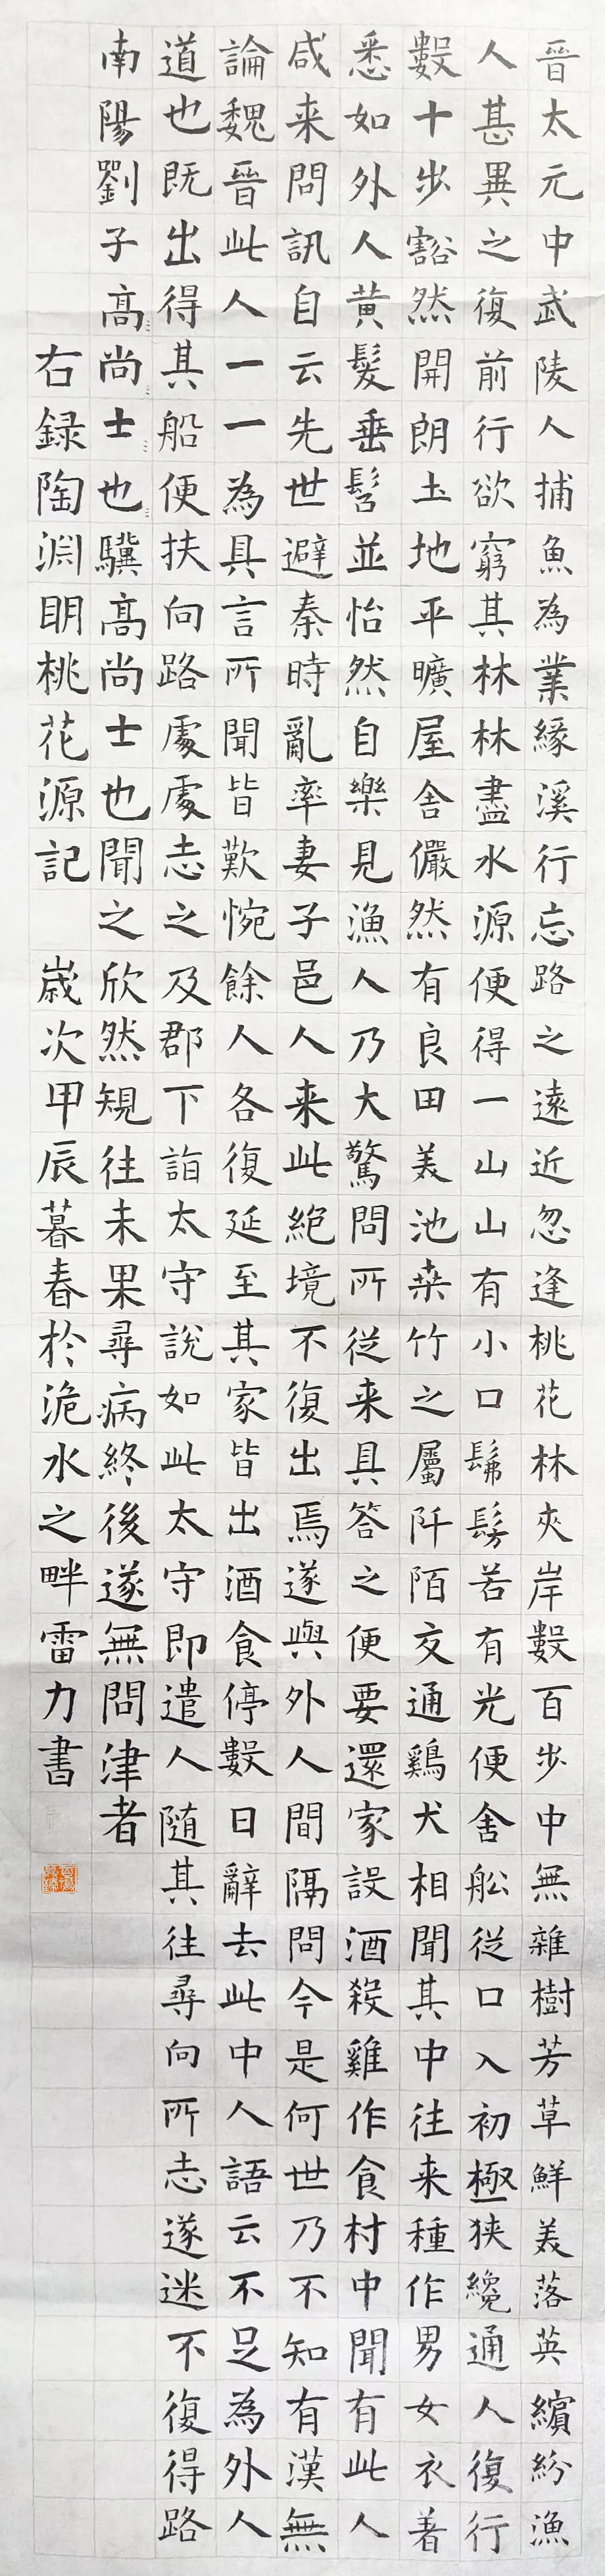 晉太元中武陵人捕魚為業緣溪行忘路之遠近忽逢桃花林夾岸數百步中無雜樹芳草鮮美落英繽紛漁
人甚異之復前行欲窮其林林盡水源便得一山山有小口髴髣若有光便舍舩從口入初極狹纔通人復行
數十步豁然開朗土地平曠屋舍儼然有良田美池桒竹之屬阡陌交通鷄犬相聞其中往来種作男女衣着
悉如外人黄髮垂髫並怡然自樂見漁人乃大驚問所從来具答之便要還家設酒殺雞作食村中聞有此人
咸来問訊自云先世避秦時亂率妻子邑人来此絕境不復出焉遂與外人間隔問今是何世乃不知有漢無
論魏晉此人一一為具言所聞皆歎惋餘人各復延至其家皆出酒食停數日辭去此中人語云不足為外人
道也既出得其船便扶向路處處志之及郡下詣太守說如此太守即遣人随其往尋向所志遂迷不復得路
南陽劉子高尚士也驥高尚士也聞之欣然規往未果尋病終後遂無問津者
右録陶淵明桃花源記 歲次甲辰暮春於洈水之畔雷力書